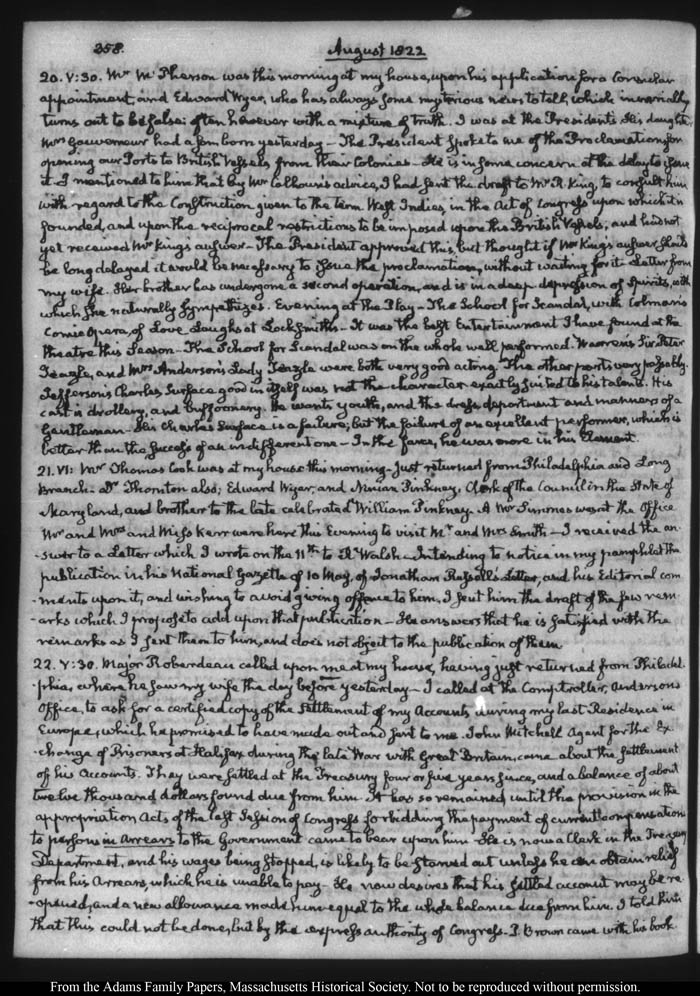 358.
August 1822
20. V:30. Mr McPherson was this morning at my house, upon his application for a Consular
appointment, and Edward Wyer, who has always some mysterious news to tell, which invariably
turns out to be false; often however with a mixture of truth. I was at the President's. His daughter
Mrs Gouverneur had a son born yesterday — The President spoke to me of the Proclamation for
opening our Ports to British Vessels from their Colonies — He is in some concern at the delay to issue
it. I mentioned to him that by Mr Calhoun's advice, I had sent the draft to Mr R. King, to consult him
with regard to the Construction given to the term West Indies, in the Act of Congress upon which it is
founded, and upon the reciprocal restrictions to be imposed upon the British Vessels, and had not
yet received Mr King's answer — The President approved this, but thought if Mr King's answer should
be long delayed it would be necessary to issue the proclamation, without waiting for it. Letter from
my wife. Her brother has undergone a second operation, and is in a deep depression of Spirits, with
which she naturally sympathizes. Evening at the Play — The School for Scandal, with Colman's
Comic Opera, of Love Laughs at Locksmiths — It was the best Entertainment I have found at the
theatre this Season — The School for Scandal was on the whole well performed. Warren's Sir Peter
Teazle, and Mrs Anderson's Lady Teazle were both very good acting. The other parts very passably.
Jefferson's Charles Surface good in itself was not the character exactly suited to his talents. His
cast is drollery, and buffoonery. He wants youth, and the dress, deportment and manners of a
Gentleman. His Charles Surface is a failure; but the failure of an excellent performer, which is
better than the success of an indifferent one — In the farce, he was more in his Element.
21. VI: Mr Thomas Cook was at my house this morning — just returned from Philadelphia and Long
Branch. Dr Thornton also; Edward Wyer, and Ninian Pinkney, Clerk of the Council in the State of
Maryland, and brother to the late celebrated William Pinkney. A Mr Simmes was at the Office
Mr and Mrs and Miss Kerr were here this Evening to visit Mr and Mrs Smith — I received the an-
-swer to a Letter which I wrote on the 11th to R. Walsh — Intending to notice in my pamphlet the
publication in his National Gazette of 10 May, of Jonathan Russell's Letter, and his Editorial com
-ments upon it, and wishing to avoid giving offence to him, I sent him the draft of the few rem-
-arks which I propose to add upon that publication — He answers that he is satisfied with the
remarks as I sent them to him, and does not object to the publication of them
22. V:30. Major Roberdeau called upon me at my house, having just returned from Philadel
-phia, where he saw my wife the day before yesterday — I called at the Comptroller, Anderson's
Office, to ask for a certified copy of the Settlement of my Accounts during my last Residence in
Europe, which he promised to have made out and sent to me. John Mitchell Agent for the Ex
-change of Prisoners at Halifax during the late War with Great Britain, came about the settlement
of his Accounts. They were settled at the Treasury four or five years since, and a balance of about
twelve thousand dollars found due from him. It has so remained until the provision in the
appropriation Acts of the last Session of Congress forbidding the payment of current compensation
to persons in Arrears to the Government came to bear upon him. He is now a Clerk in the Treasury
Department, and his wages being stopped, is likely to be starved out unless he can obtain relief
from his Arrears, which he is unable to pay — He now desires that his settled account may be re
-opened, and a new allowance made him equal to the whole balance due from him. I told him
that this could not be done, but by the express authority of Congress — I. Brown came with his book
From the Adams Family Papers, Massachusetts Historical Society. Not to be reproduced without permission.